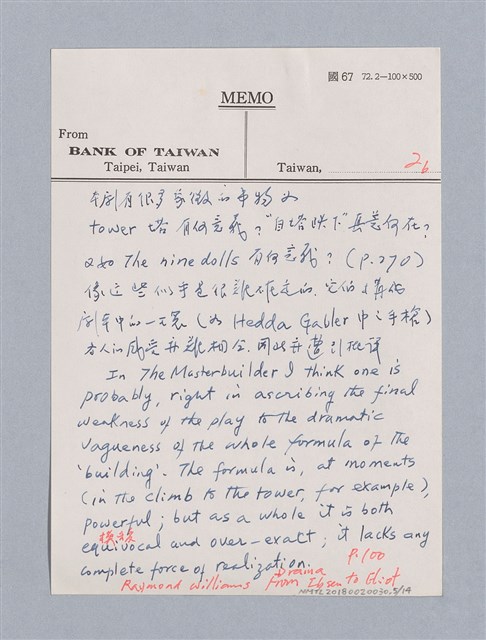 國 67 72.2—100×500
MEMO
From
BANK OF TAIWAN
Taipei, Taiwan
Taiwan,
26
本劇有很多象徵的事物如
tower 塔 有何意義? "自塔跌下" 真意何在?
The nine dolls 有何意義? (p.270)
像這些似乎是很難確定的. 它們
劇本中的一元素 (如 Hedda Gabler 中之手槍)
各人的感受并難相合. 因此亦遭引批評
In The Masterbuilder I think one is
probably, right in ascribing the final
weakness of the play to the dramatic
vagueness of the whole formula of the
'building'. The formula is, at moments
(in the climb to the tower, for example),
powerful; but as a whole it is both
equivocal and over-exact; it lacks any
complete force of realization.
P.100
Raymond Williams Drama From Ibsen to Eliot
NMTL20180020030.5/14